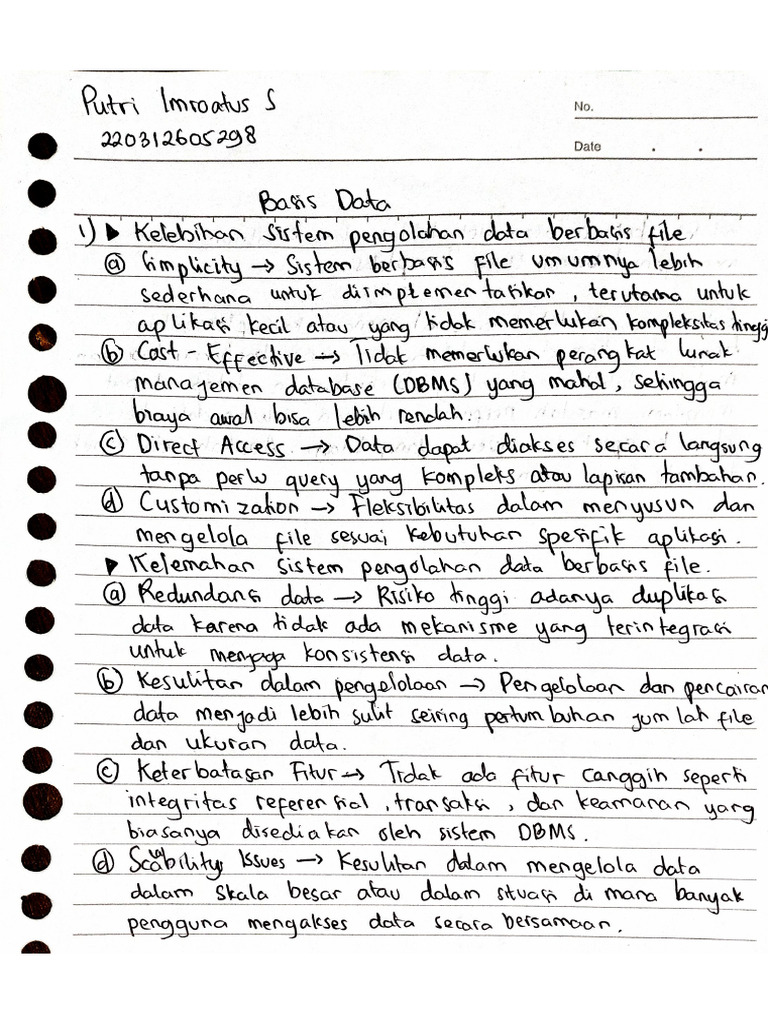 Putri Imroatus S
No.
220312605298
Date . .
Basis Data
1) ▶ Kelebihan sistem pengolahan data berbasis file
ⓐ Simplicity → Sistem berbasis file umumnya lebih
sederhana untuk diimplementasikan, terutama untuk
aplikasi kecil atau yang tidak memerlukan kompleksitas tinggi
ⓑ Cost - Effective → Tidak memerlukan perangkat lunak
manajemen database (DBMS) yang mahal, sehingga
biaya awal bisa lebih rendah.
ⓒ Direct Access → Data dapat diakses secara langsung
tanpa perlu query yang kompleks atau lapisan tambahan.
ⓓ Customization → Fleksibilitas dalam menyusun dan
mengelola file sesuai kebutuhan spesifik aplikasi.
▶ Kelemahan sistem pengolahan data berbasis file.
ⓐ Redundansi data → Risiko tinggi adanya duplikasi
data karena tidak ada mekanisme yang terintegrasi
untuk menjaga konsistensi data.
ⓑ Kesulitan dalam pengelolaan → Pengelolaan dan pencairan
data menjadi lebih sulit seiring pertumbuhan jumlah file
dan ukuran data.
ⓒ Keterbatasan Fitur → Tidak ada fitur canggih seperti
integritas referensial, transaksi, dan keamanan yang
biasanya disediakan oleh sistem DBMS.
ⓓ Scalability Issues → Kesulitan dalam mengelola data
dalam skala besar atau dalam situasi di mana banyak
pengguna mengakses data secara bersamaan.